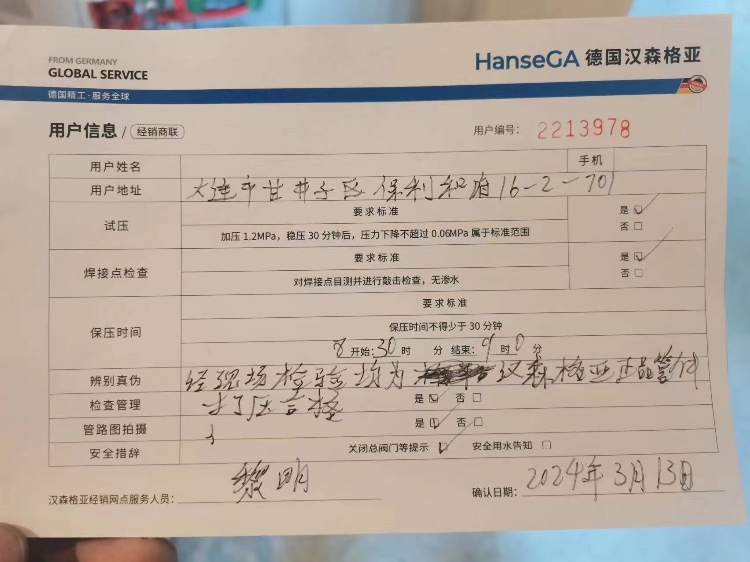 FROM GERMANY
GLOBAL SERVICE
HanseGA 德国汉森格亚
德国精工·服务全球
用户信息 / 经销商联
用户编号: 2213978
用户姓名 手机
用户地址 大连市甘井子区保利和府16-2-701
试压 要求标准 是
加压 1.2MPa，稳压 30 分钟后，压力下降不超过 0.06MPa 属于标准范围 否
焊接点检查 要求标准 是
对焊接点目测并进行敲击检查，无渗水 否
保压时间 要求标准
保压时间不得少于 30 分钟
8 开始: 30 时 分 结束: 9 时 0 分
辨别真伪 经现场检验均为 汉森格亚正品管件
检查管理 打压合格 是 否
管路图拍摄 是 否
安全措辞 关闭总阀门等提示 安全用水告知
汉森格亚经销网点服务人员: 黎明 确认日期: 2024年3月13日